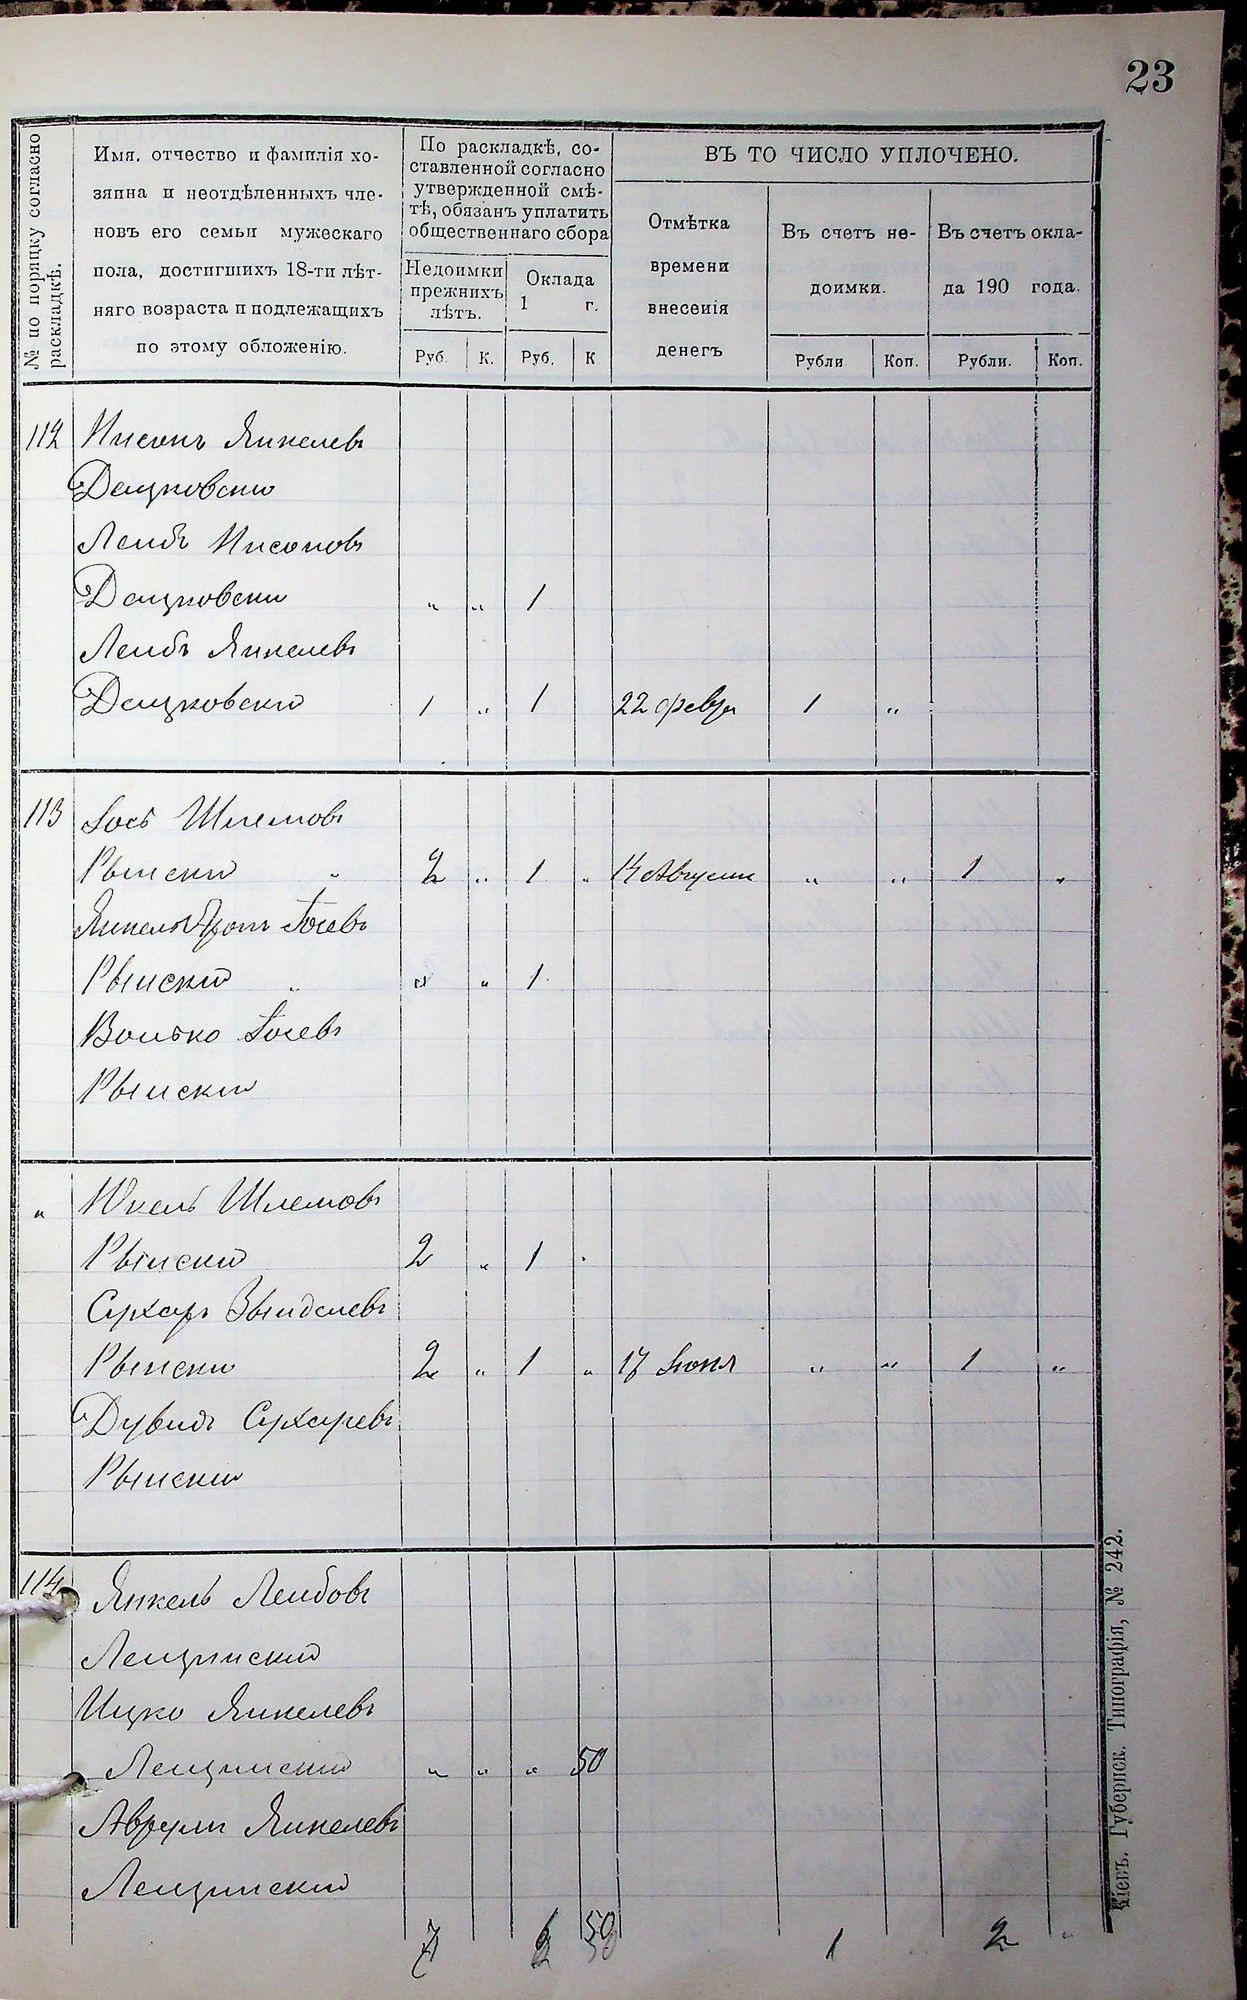 23
№ по порядку согласно раскладкѣ.
Имя, отчество и фамилія хо-
зяина и неотдѣленныхъ чле-
новъ его семьи мужескаго
пола, достигшихъ 18-ти лѣт-
няго возраста и подлежащихъ
по этому обложенію.
По раскладкѣ, со-
ставленной согласно
утвержденной смѣ-
тѣ, обязанъ уплатить
общественнаго сбора
Недоимки
прежнихъ
лѣтъ.
Оклада
1 г.
Руб. К. Руб. К
ВЪ ТО ЧИСЛО УПЛОЧЕНО.
Отмѣтка
времени
внесенія
денегъ
Въ счетъ не-
доимки.
Рубли Коп.
Въ счетъ окла-
да 190 года.
Рубли. Коп.
112 Нисонъ Янкелевъ
Дацковски
Лейбъ Нисоновъ
Дацковски " " 1
Лейбъ Янкелевъ
Дацковски 1 " 1 22 февр 1 "
113 Іось Шлемовъ
Рыински " 2 " 1 " 14 Августа " " 1 "
Янкель Іосевъ
Рыински " " " 1
Волько Іосевъ
Рыински
" Шлемовъ
Рыински 2 " 1
Сухаръ
Рыински 2 " 1 " 17 Іюня " " 1 "
Дувидъ Сухаревъ
Рыински
114 Янкель Лейбовъ
Лещински
Ицко Янкелевъ
Лещински " " " 50
Аврумъ Янкелевъ
Лещински
7 6 50 1 2 "
Кіевъ. Губернск. Типографія, № 242.